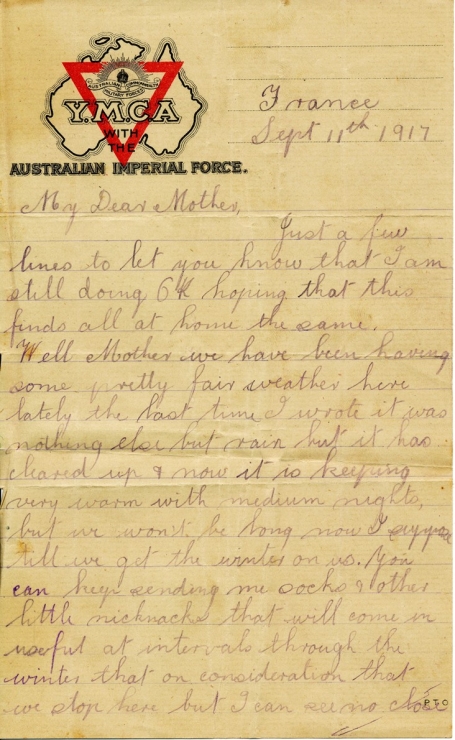 AUSTRALIAN COMMONWEALTH
MILITARY FORCES
Y.M.C.A
WITH
THE
AUSTRALIAN IMPERIAL FORCE.
France
Sept 11th 1917
My Dear Mother,
Just a few
lines to let you know that I am
still doing OK hoping that this
finds all at home the same.
Well Mother we have been having
some pretty fair weather here
lately the last time I wrote it was
nothing else but rain but it has
cleared up & now it is keeping
very warm with medium nights,
but we won't be long now I suppose
till we get the winter on us. You
can keep sending me socks & other
little nicknacks that will come in
useful at intervals through the
winter that on consideration that
we stop here but I can see no
P.T.O